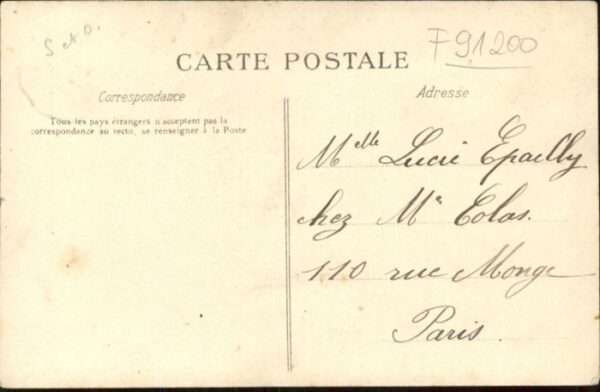 S et O.
F 91200
CARTE POSTALE
Correspondance
Tous les pays étrangers n'acceptent pas la
correspondance au recto, se renseigner à la Poste
Adresse
Melle Lucie Epailly
chez Mr Colas.
110 rue Monge
Paris.